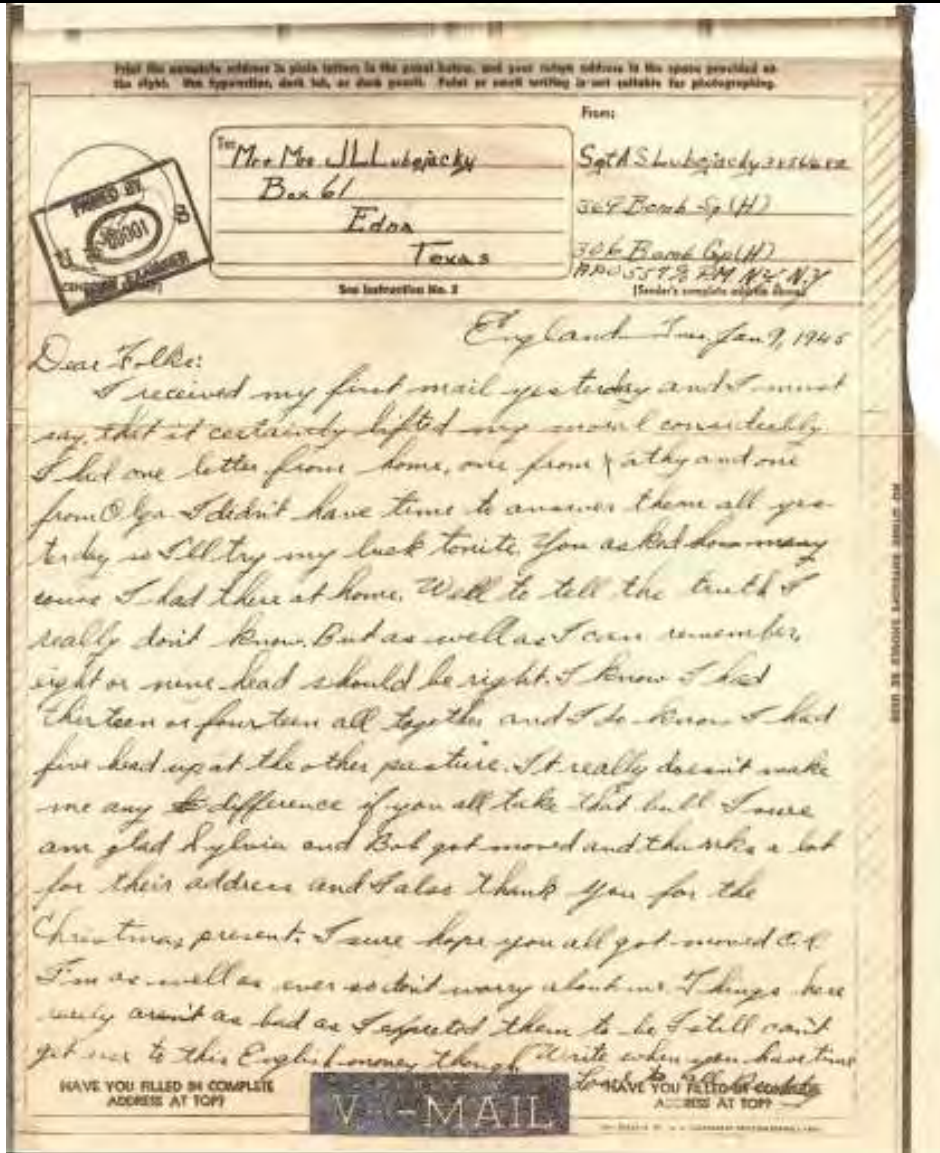 Print the complete address in plain letters in the panel below, and your return address in the space provided on
the right. Use typewriter, dark ink, or dark pencil. Faint or small writing is not suitable for photographing.
From:
To:
Mr + Mrs J L Lubojacky
Box 61
Edna
Texas
Sgt A S Lubojacky
369 Bomb Sq (H)
306 Bomb Gp (H)
APO 557 % PM N.Y. N.Y
(Sender's complete address above)
PASSED BY
U S
00001
EXAMINER
See Instruction No. 2
England Tues. Jan 9, 1945
Dear Folks:
I received my first mail yesterday and I must
say, that it certainly lifted my moral considerably.
I had one letter from home, one from Kathy and one
from Olga. I didn't have time to answer them all yes-
terday so I'll try my luck tonite. You asked how many
cows I had there at home. Well to tell the truth I
really don't know. But as well as I can remember,
eight or nine head should be right. I know I had
thirteen or fourteen all together and I do know I had
five head up at the other pasture. It really doesn't make
me any difference if you all take that bull. I sure
am glad Sylvia and Bob got moved and thanks a lot
for their address and I also thank you for the
Christmas present. I sure hope you all got moved O.K.
I'm as well as ever so don't worry about me. Things here
aren't as bad as I expected them to be. I still can't
get use to this English money though. Write when you have time
Love to all
HAVE YOU FILLED IN COMPLETE
ADDRESS AT TOP?
V-MAIL
HAVE YOU FILLED IN COMPLETE
ADDRESS AT TOP?